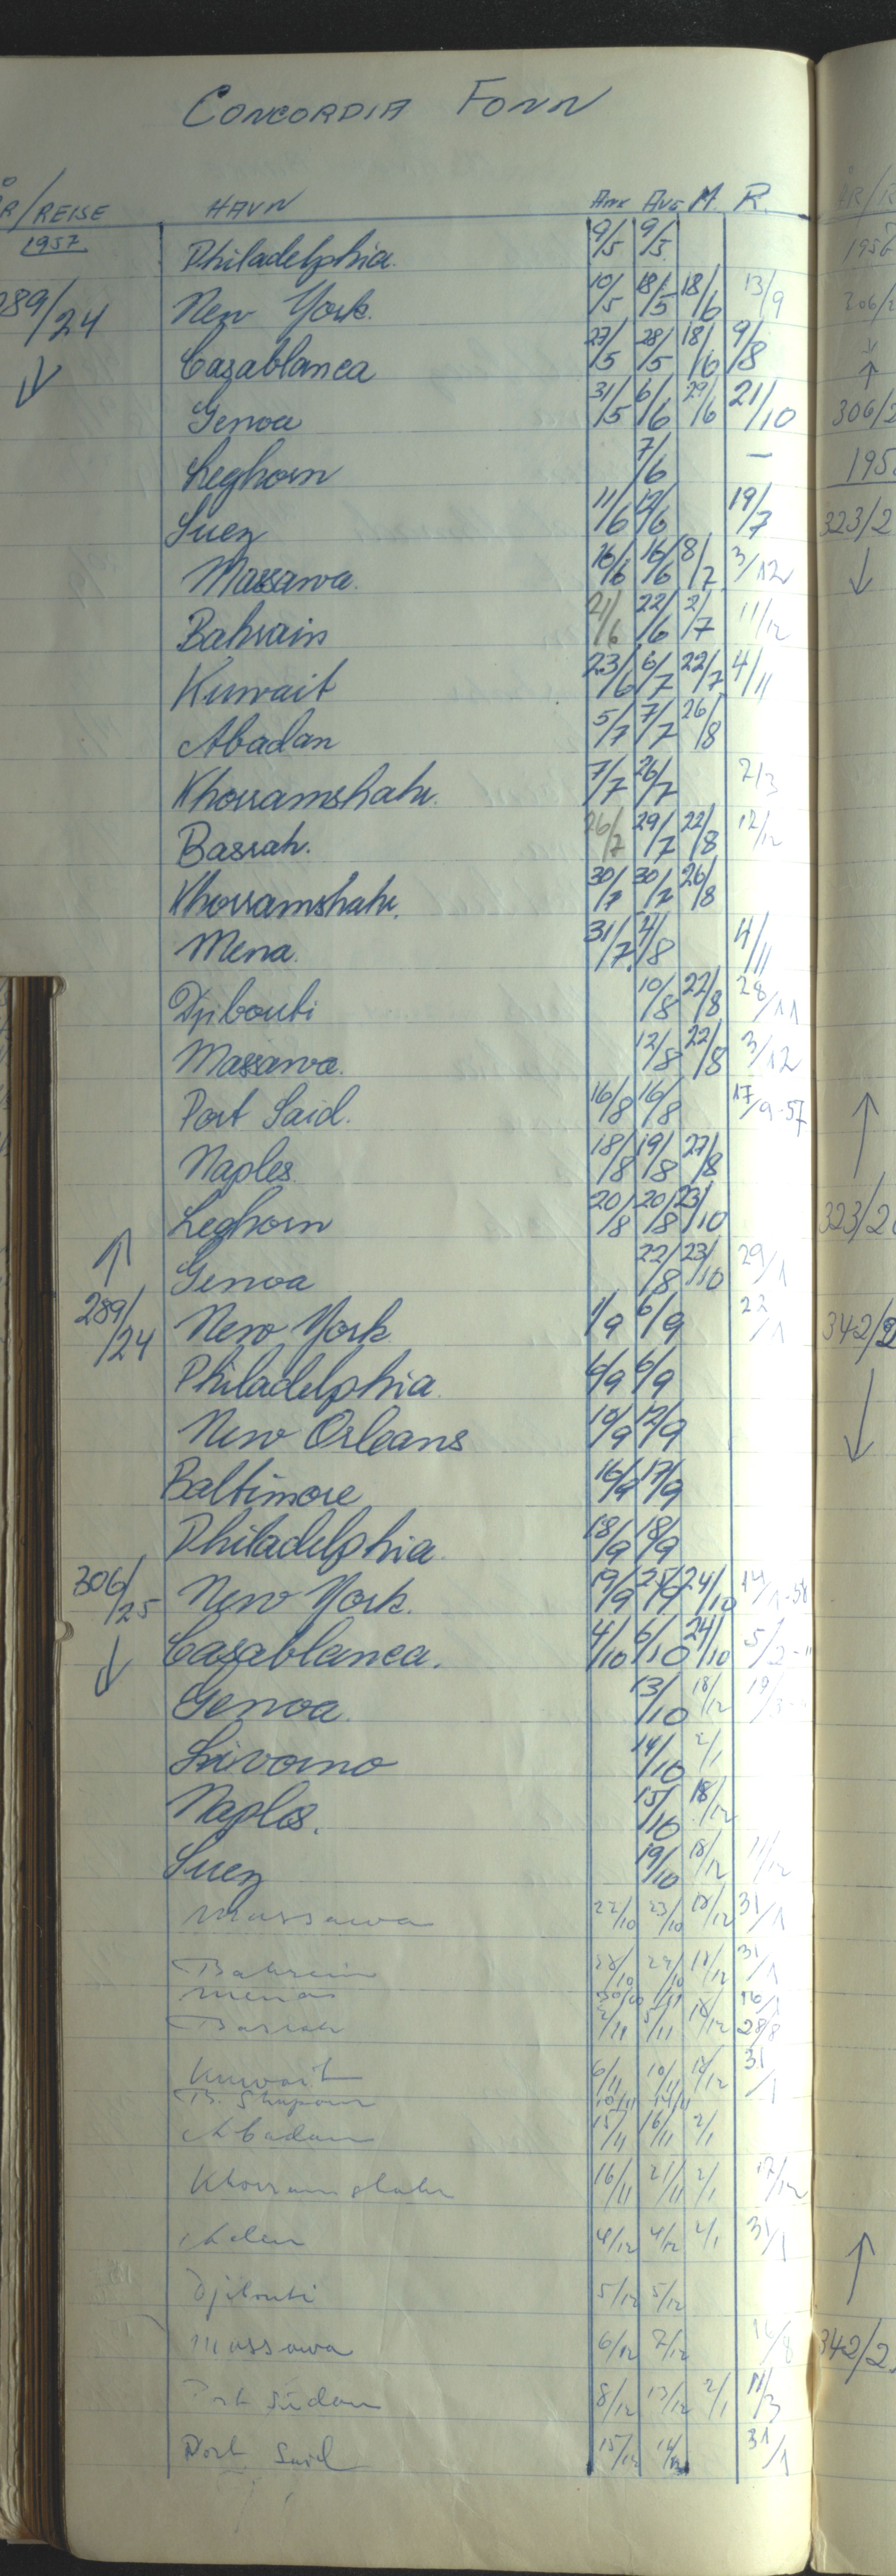 CONCORDIA FONN
ÅR/REISE HAVN ANK AVG M. R.
1957 Philadelphia. 9/5 9/5
289/24 New York. 10/5 18/5 18/6 13/9
Casablanca 27/5 28/5 18/6 9/8
Genoa 31/5 6/6 29/6 21/10
Leghorn 7/6 —
Suez 11/6 12/6 19/7
Massawa. 16/6 16/6 8/7 3/12
Bahrain 21/6 22/6 2/7 11/12
Kuwait 23/6 6/7 22/7 4/11
Abadan 5/7 7/7 26/8
Khorramshahr. 7/7 26/7 2/3
Basrah. 26/7 29/7 22/8 12/12
Khorramshahr. 30/7 30/7 26/8
Mena. 31/7 4/8 4/11
Djibouti 10/8 22/8 28/11
Massawa. 12/8 22/8 3/12
Port Said. 16/8 16/8 17/9-57
Naples 18/8 19/8 27/8
Leghorn 20/8 20/8 23/10
Genoa 22/8 23/10 29/1
289/24 New York 1/9 6/9 22/1
Philadelphia. 6/9 6/9
New Orleans 10/9 12/9
Baltimore 16/9 17/9
Philadelphia. 18/9 18/9
306/25 New York. 19/9 25/9 24/10 14/1-58
Casablanca. 4/10 6/10 24/10 5/2-"
Genoa. 13/10 18/12 19/3
Livorno 14/10 2/1
Naples. 15/10 18/12
Suez 19/10 18/12 11/12
Massawa 22/10 23/10 18/12 31/1
Bahrein 28/10 29/10 18/12 31/1
Mena 30/10 1/11 16/1
Basrah 2/11 5/11 18/12 28/8
Kuwait 6/11 10/11 18/12 31/1
B. Shapour 10/11 14/11
Abadan 15/11 16/11 2/1
Khorramshahr 16/11 21/11 2/1 17/12
Aden 4/12 4/12 2/1 31/1
Djibouti 5/12 5/12
Massawa 6/12 7/12 16/8
Port Sudan 8/12 13/12 2/1 11/3
Port Said 15/12 16/12 31/1
ÅR/R
1956
306/2
306/2
195
323/2
323/2
342/2
342/2